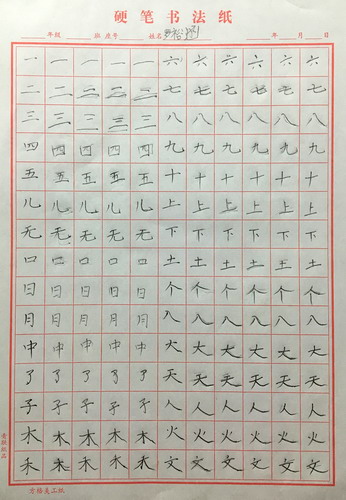 硬笔书法纸
年级 班 座号 姓名 年 月 日
一 一 一 一 一 六 六 六 六 六 六
二 二 二 二 二 七 七 七 七 七 七
三 三 三 三 三 八 八 八 八 八 八
四 四 四 四 四 九 九 九 九 九 九
五 五 五 五 五 十 十 十 十 十 十
儿 儿 儿 儿 儿 上 上 上 上 上 上
无 无 无 无 无 下 下 下 下 下 下
口 口 口 口 口 土 土 土 土 土 土
日 日 日 日 日 个 个 个 个 个 个
月 月 月 月 月 入 入 入 入 入 入
中 中 中 中 中 大 大 大 大 大 大
了 了 了 了 了 天 天 天 天 天 天
子 子 子 子 子 人 人 人 人 人 人
木 木 木 木 木 火 火 火 火 火 火
禾 禾 禾 禾 禾 文 文 文 文 文 文
方格美工纸